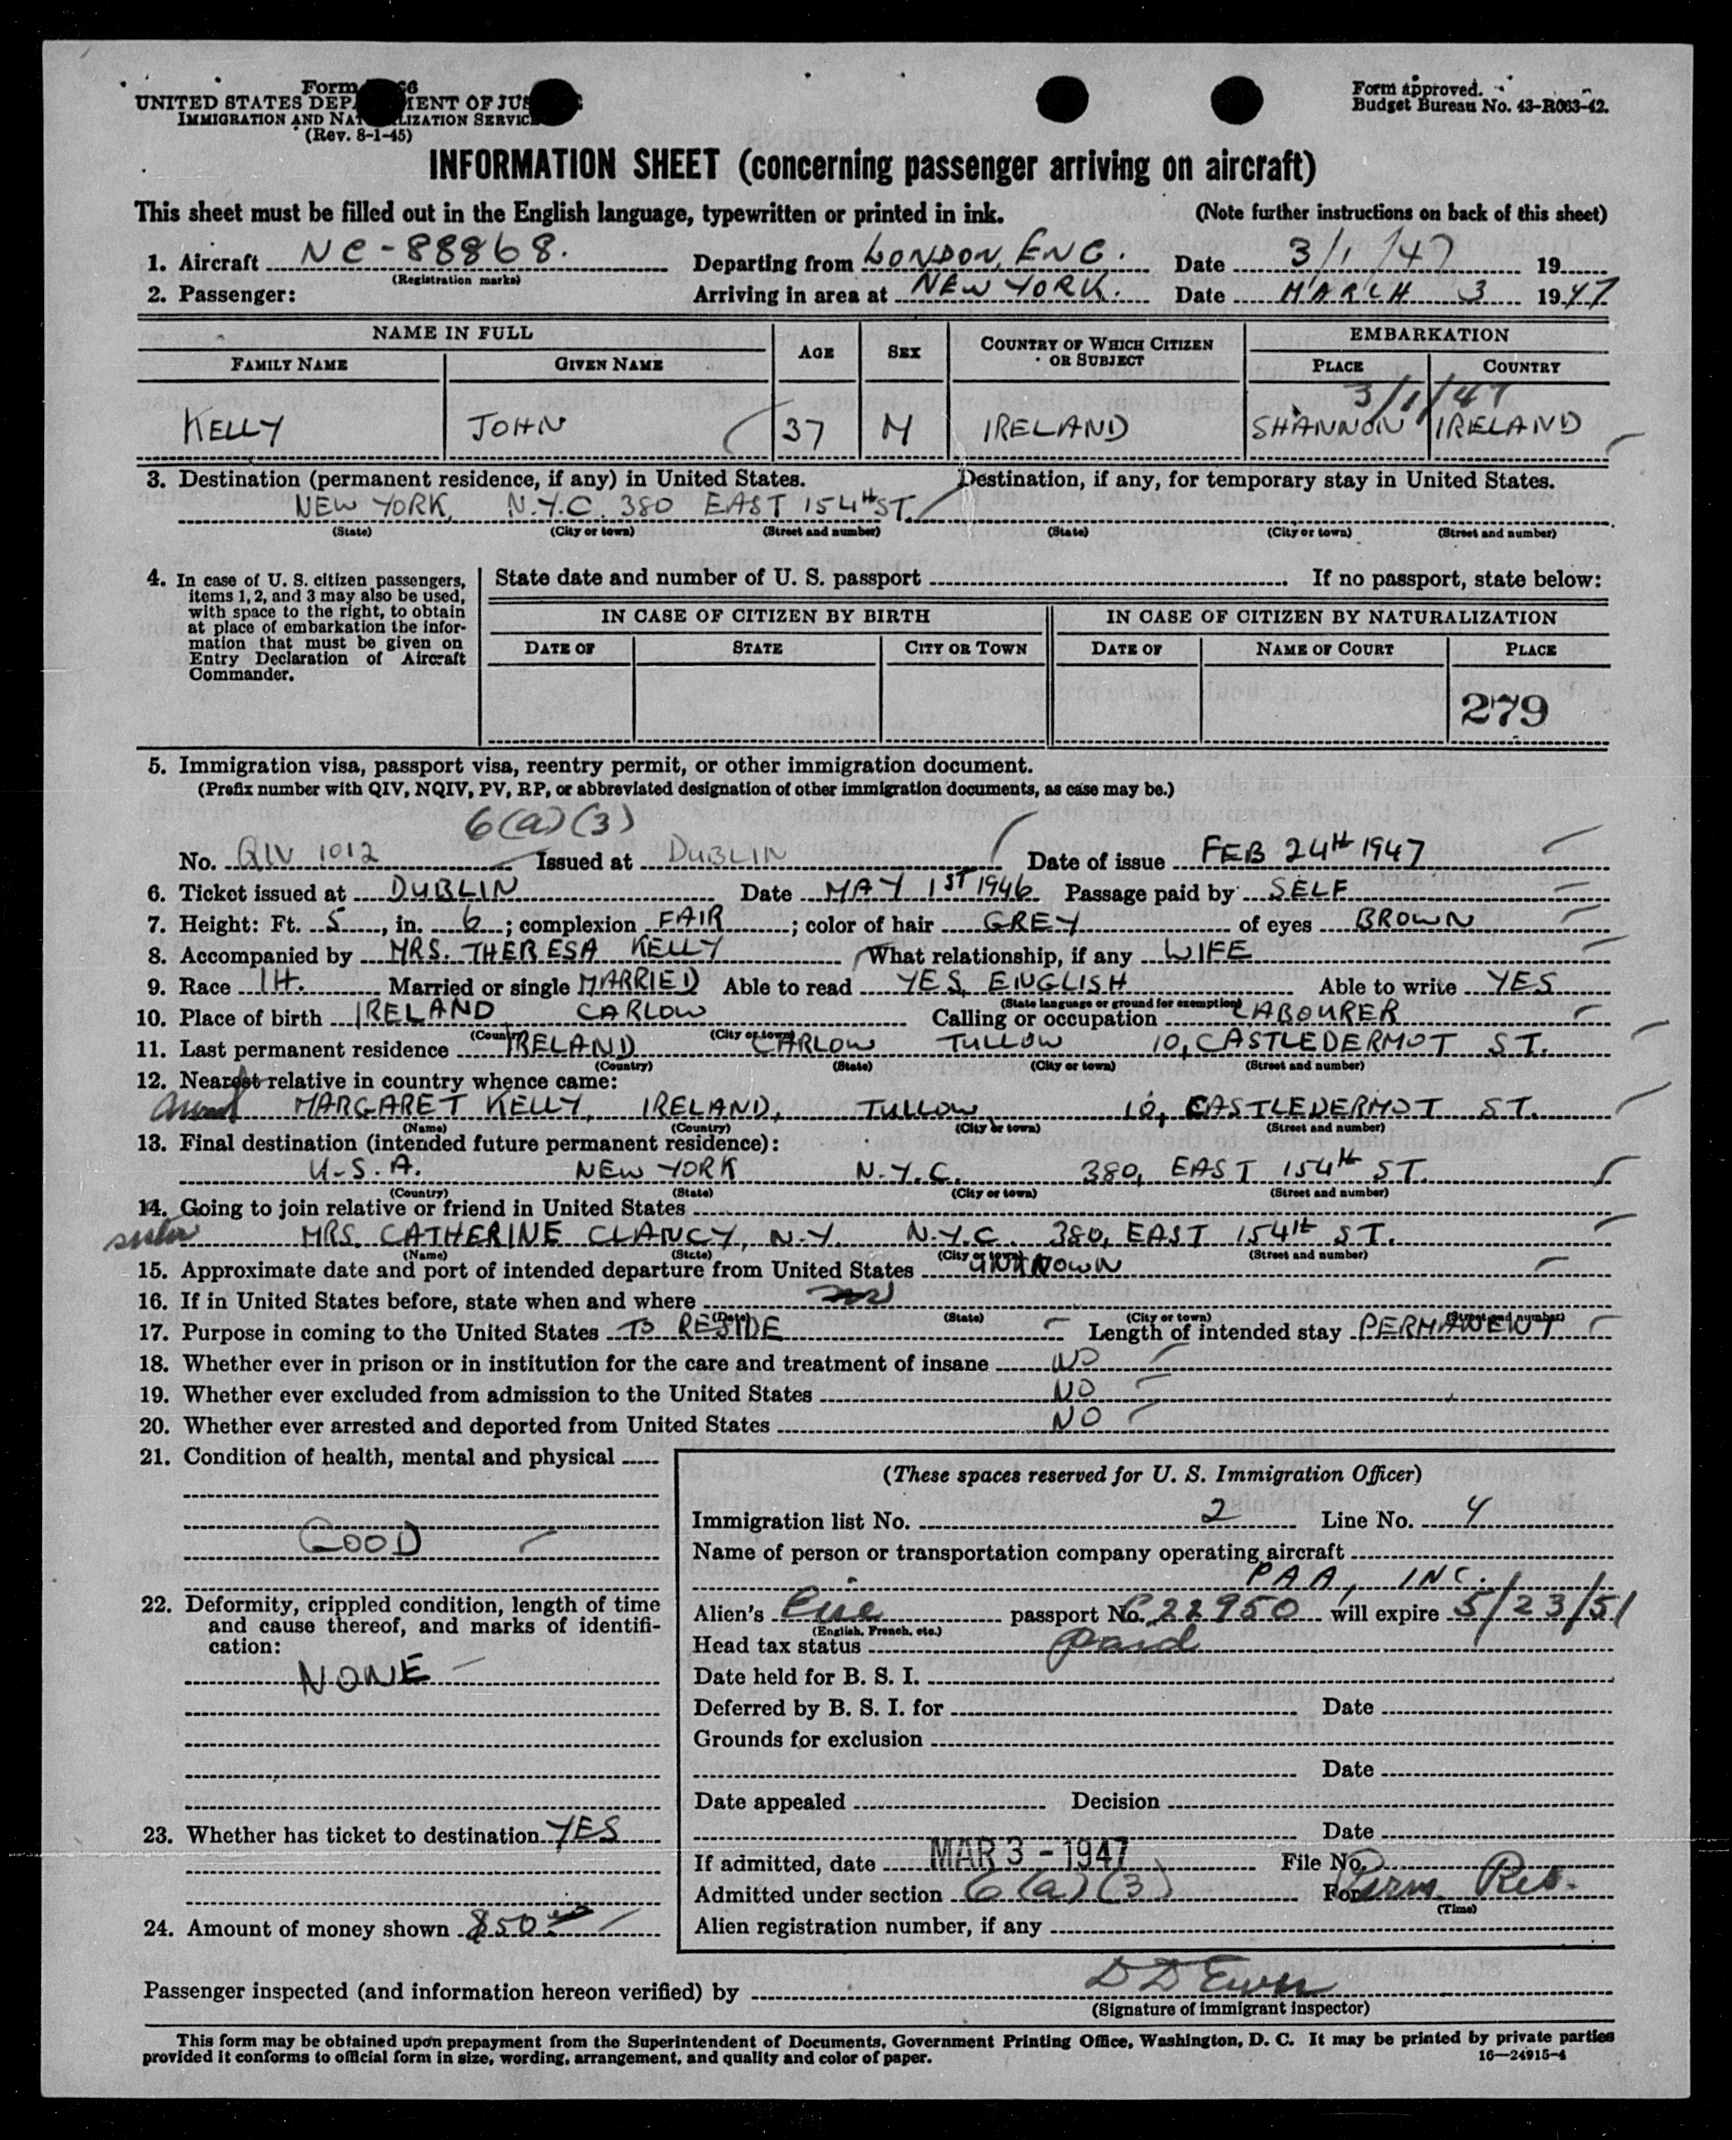 Form 66
UNITED STATES DEP MENT OF JUS
IMMIGRATION AND NAT LIZATION SERVIC
(Rev. 8-1-45)
Form approved.
Budget Bureau No. 43-R063-42.
INFORMATION SHEET (concerning passenger arriving on aircraft)
This sheet must be filled out in the English language, typewritten or printed in ink. (Note further instructions on back of this sheet)
1. Aircraft NC-88868. Departing from LONDON, ENG. Date 3/1/47 19
(Registration marks)
2. Passenger: Arriving in area at NEW YORK. Date MARCH 3 1947
NAME IN FULL AGE SEX COUNTRY OF WHICH CITIZEN OR SUBJECT EMBARKATION
FAMILY NAME GIVEN NAME PLACE COUNTRY
3/1/47
KELLY JOHN 37 M IRELAND SHANNON IRELAND
3. Destination (permanent residence, if any) in United States. Destination, if any, for temporary stay in United States.
NEW YORK, N.Y.C. 380 EAST 154TH ST.
(State) (City or town) (Street and number) (State) (City or town) (Street and number)
4. In case of U. S. citizen passengers, items 1, 2, and 3 may also be used, with space to the right, to obtain at place of embarkation the information that must be given on Entry Declaration of Aircraft Commander.
State date and number of U. S. passport If no passport, state below:
IN CASE OF CITIZEN BY BIRTH IN CASE OF CITIZEN BY NATURALIZATION
DATE OF STATE CITY OR TOWN DATE OF NAME OF COURT PLACE
279
5. Immigration visa, passport visa, reentry permit, or other immigration document.
(Prefix number with QIV, NQIV, PV, RP, or abbreviated designation of other immigration documents, as case may be.)
6(a)(3)
No. QIV 1012 Issued at DUBLIN Date of issue FEB 24TH 1947
6. Ticket issued at DUBLIN Date MAY 1ST 1946 Passage paid by SELF
7. Height: Ft. 5, in. 6; complexion FAIR; color of hair GREY of eyes BROWN
8. Accompanied by MRS. THERESA KELLY What relationship, if any WIFE
9. Race IH. Married or single MARRIED Able to read YES, ENGLISH Able to write YES
(State language or ground for exemption)
10. Place of birth IRELAND CARLOW Calling or occupation LABOURER
(Country) (City or town)
11. Last permanent residence IRELAND CARLOW TULLOW 10, CASTLEDERMOT ST.
(Country) (State) (City or town) (Street and number)
12. Nearest relative in country whence came:
Aunt MARGARET KELLY, IRELAND, TULLOW 10, CASTLEDERMOT ST.
(Name) (Country) (City or town) (Street and number)
13. Final destination (intended future permanent residence):
U.S.A. NEW YORK N.Y.C. 380, EAST 154th ST.
(Country) (State) (City or town) (Street and number)
14. Going to join relative or friend in United States
sister MRS. CATHERINE CLANCY, N.Y. N.Y.C. 380, EAST 154th ST.
(Name) (State) (City or town) (Street and number)
15. Approximate date and port of intended departure from United States UNKNOWN
16. If in United States before, state when and where
(Date) (State) (City or town) (Street and number)
17. Purpose in coming to the United States TO RESIDE Length of intended stay PERMANENT
18. Whether ever in prison or in institution for the care and treatment of insane NO
19. Whether ever excluded from admission to the United States NO
20. Whether ever arrested and deported from United States NO
21. Condition of health, mental and physical
GOOD
22. Deformity, crippled condition, length of time and cause thereof, and marks of identification:
NONE
23. Whether has ticket to destination YES
24. Amount of money shown $50
(These spaces reserved for U. S. Immigration Officer)
Immigration list No. 2 Line No. 4
Name of person or transportation company operating aircraft
PAA, INC.
Alien's Eire passport No. C22950 will expire 5/23/51
(English, French, etc.)
Head tax status paid
Date held for B. S. I.
Deferred by B. S. I. for Date
Grounds for exclusion
Date
Date appealed Decision
Date
If admitted, date MAR 3 - 1947 File No.
Admitted under section 6(a)(3) For Perm. Res.
(Time)
Alien registration number, if any
Passenger inspected (and information hereon verified) by
(Signature of immigrant inspector)
This form may be obtained upon prepayment from the Superintendent of Documents, Government Printing Office, Washington, D. C. It may be printed by private parties
provided it conforms to official form in size, wording, arrangement, and quality and color of paper.
16—24915-4